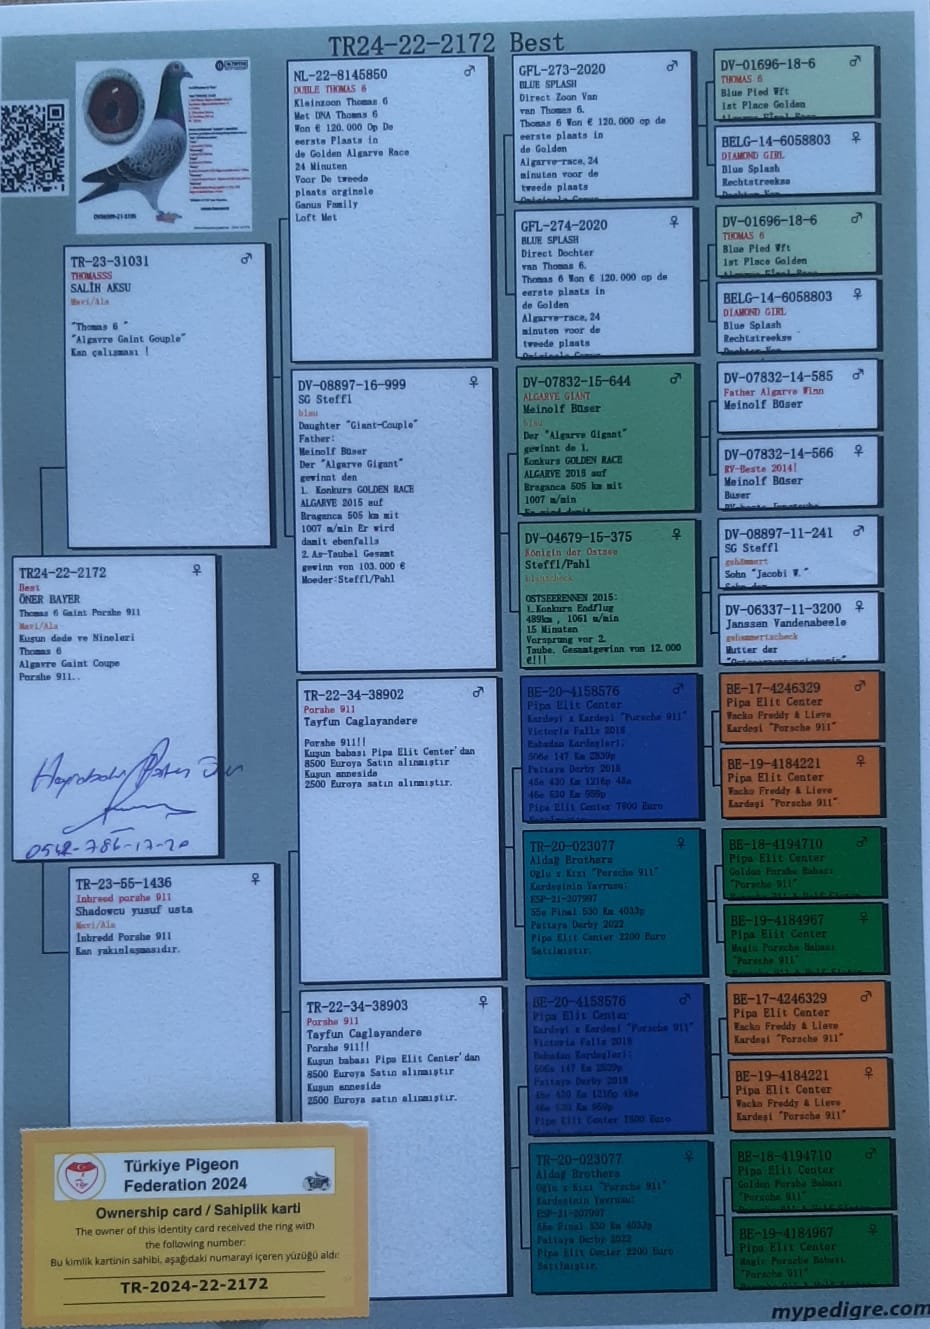 TR24-22-2172 Best
TR-23-31031 ♂
THOMASSS
SALİH AKSU
Mavi/Ala
"Thomas 6 "
"Algavre Gaint Gouple"
Kan çalışması !
TR24-22-2172 ♀
Best
ÖNER BAYER
Thomas 6 Gaint Porshe 911
Mavi/Ala
Kuşun dede ve Nineleri
Thomas 6
Algavre Gaint Coupe
Porshe 911..
TR-23-55-1436 ♀
Inbreed porshe 911
Shadowcu yusuf usta
Mavi/Ala
İnbredd Porshe 911
Kan yakınlaşmasıdır.
NL-22-8145850 ♂
DUBLE THOMAS 6
Kleinzoon Thomas 6
Met DNA Thomas 6
Won € 120.000 Op De
eerste Plaats in
de Golden Algarve Race
24 Minuten
Voor De tweede
plaats orginele
Ganus Family
Loft Met
DV-08897-16-999 ♀
SG Steffl
blau
Daughter "Giant-Couple"
Father:
Meinolf Büser
Der "Algarve Gigant"
gewinnt den
1. Konkurs GOLDEN RACE
ALGARVE 2015 auf
Braganca 505 km mit
1007 m/min Er wird
damit ebenfalls
2. As-Taubel Gesamt
gewinn von 103.000 €
Moeder:Steffl/Pahl
TR-22-34-38902 ♂
Porshe 911
Tayfun Caglayandere
Porshe 911!!
Kuşun babası Pipa Elit Center'dan
8500 Euroya Satın alınmıştır
Kuşun anneside
2500 Euroya satın alınmıştır.
TR-22-34-38903 ♀
Porshe 911
Tayfun Caglayandere
Porshe 911!!
Kuşun babası Pipa Elit Center'dan
8500 Euroya Satın alınmıştır
Kuşun anneside
2500 Euroya satın alınmıştır.
GFL-273-2020 ♂
BLUE SPLASH
Direct Zoon Van
van Thomas 6.
Thomas 6 Won € 120.000 op de
eerste plaats in
de Golden
Algarve-race, 24
minuten voor de
tweede plaats
GFL-274-2020 ♀
BLUE SPLASH
Direct Dochter
van Thomas 6.
Thomas 6 Won € 120.000 op de
eerste plaats in
de Golden
Algarve-race, 24
minuten voor de
tweede plaats
DV-07832-15-644 ♂
ALGARVE GIANT
Meinolf Büser
blau
Der "Algarve Gigant"
gewinnt de 1.
Konkurs GOLDEN RACE
ALGARVE 2015 auf
Braganca 505 km mit
1007 m/min
DV-04679-15-375 ♀
Königin der Ostsee
Steffl/Pahl
OSTSEERENNEN 2015:
1.Konkurs Endflug
489km , 1061 m/min
15 Minuten
Vorsprung vor 2.
Taube. Gesamtgewinn von 12.000
€!!!
BE-20-4158576 ♂
Pipa Elit Center
Kardeşi x Kardeşi "Porsche 911"
Victoria Falls 2018
Babadan Kardeşleri:
506e 147 Km 2839p
Pattaya Derby 2018
46e 530 Km 959p
Pipa Elit Center 7800 Euro
TR-20-023077 ♀
Aldağ Brothers
Oğlu x Kızı "Porsche 911"
Kardeşinin Yavrusu:
ESP-21-207997
55e Final 530 Km 4033p
Pattaya Derby 2022
Pipa Elit Center 2200 Euro
Satılmıştır.
BE-20-4158576 ♂
Pipa Elit Center
Kardeşi x Kardeşi "Porsche 911"
Victoria Falls 2018
Babadan Kardeşleri:
506e 147 Km 2839p
Pattaya Derby 2018
46e 530 Km 959p
Pipa Elit Center 7800 Euro
TR-20-023077 ♀
Aldağ Brothers
Oğlu x Kızı "Porsche 911"
Kardeşinin Yavrusu:
ESP-21-207997
55e Final 530 Km 4033p
Pattaya Derby 2022
Pipa Elit Center 2200 Euro
Satılmıştır.
DV-01696-18-6 ♂
THOMAS 6
Blue Pied Wft
1st Place Golden
BELG-14-6058803 ♀
DIAMOND GIRL
Blue Splash
Rechtstreekse
DV-01696-18-6 ♂
THOMAS 6
Blue Pied Wft
1st Place Golden
BELG-14-6058803 ♀
DIAMOND GIRL
Blue Splash
Rechtstreekse
DV-07832-14-585 ♂
Father Algarve Winn
Meinolf Büser
DV-07832-14-566 ♀
RV-Beste 2014!
Meinolf Büser
Büser
DV-08897-11-241 ♂
SG Steffl
gehämmert
Sohn "Jacobi W."
DV-06337-11-3200 ♀
Janssen Vandenabeele
gehämmertscheck
Mutter der
BE-17-4246329 ♂
Pipa Elit Center
Wacko Freddy & Lieve
Kardeşi "Porsche 911"
BE-19-4184221 ♀
Pipa Elit Center
Wacko Freddy & Lieve
Kardeşi "Porsche 911"
BE-18-4194710 ♂
Pipa Elit Center
Golden Porshe Babası
"Porsche 911"
BE-19-4184967 ♀
Pipa Elit Center
Magic Porsche Babası
"Porsche 911"
BE-17-4246329 ♂
Pipa Elit Center
Wacko Freddy & Lieve
Kardeşi "Porsche 911"
BE-19-4184221 ♀
Pipa Elit Center
Wacko Freddy & Lieve
Kardeşi "Porsche 911"
BE-18-4194710 ♂
Pipa Elit Center
Golden Porshe Babası
"Porsche 911"
BE-19-4184967 ♀
Pipa Elit Center
Magic Porsche Babası
"Porsche 911"
Türkiye Pigeon
Federation 2024
Ownership card / Sahiplik karti
The owner of this identity card received the ring with
the following number:
Bu kimlik kartinin sahibi, aşağıdaki numarayi içeren yüzüğü aldı:
TR-2024-22-2172
mypedigre.com